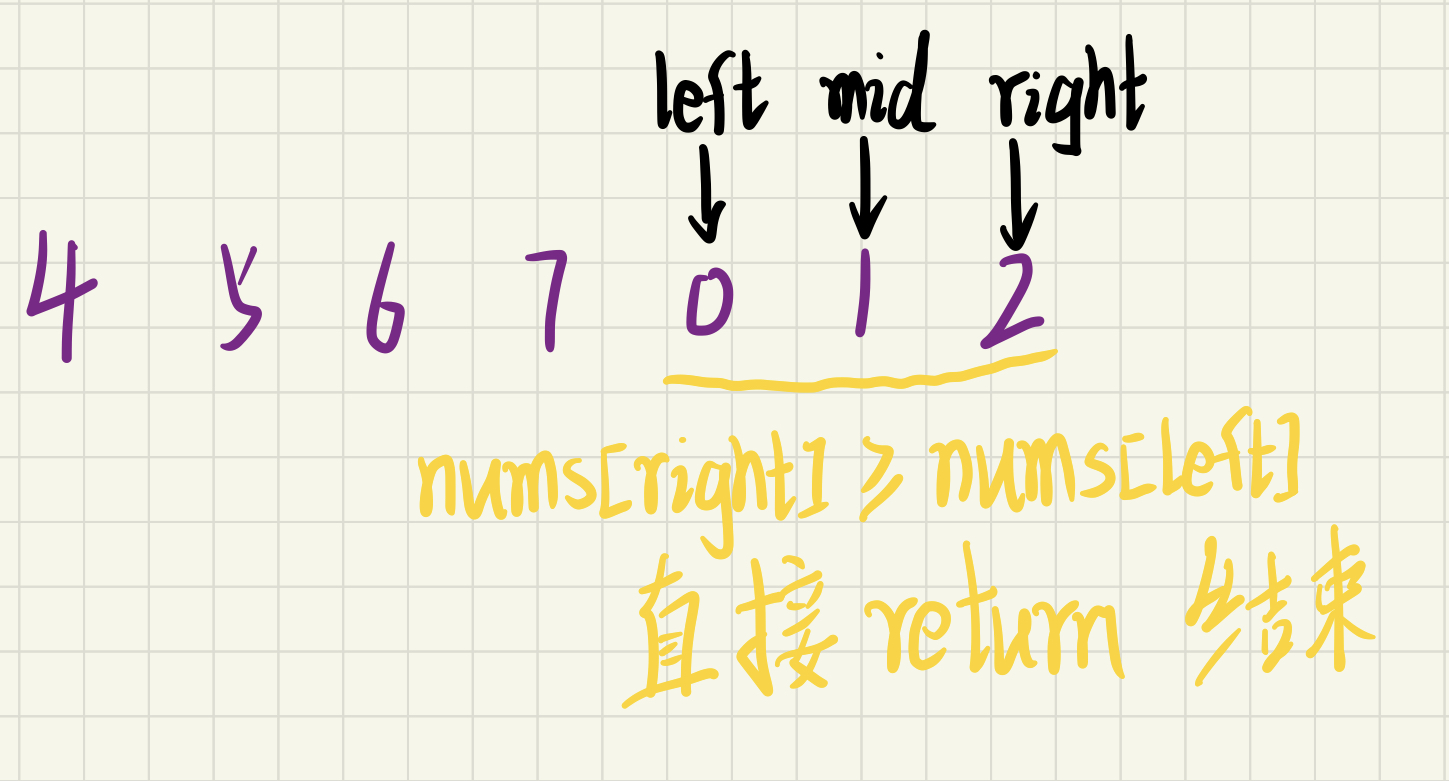 left mid right
4 5 6 7 0 1 2
nums[right] ≥ nums[left]
直接 return 结束